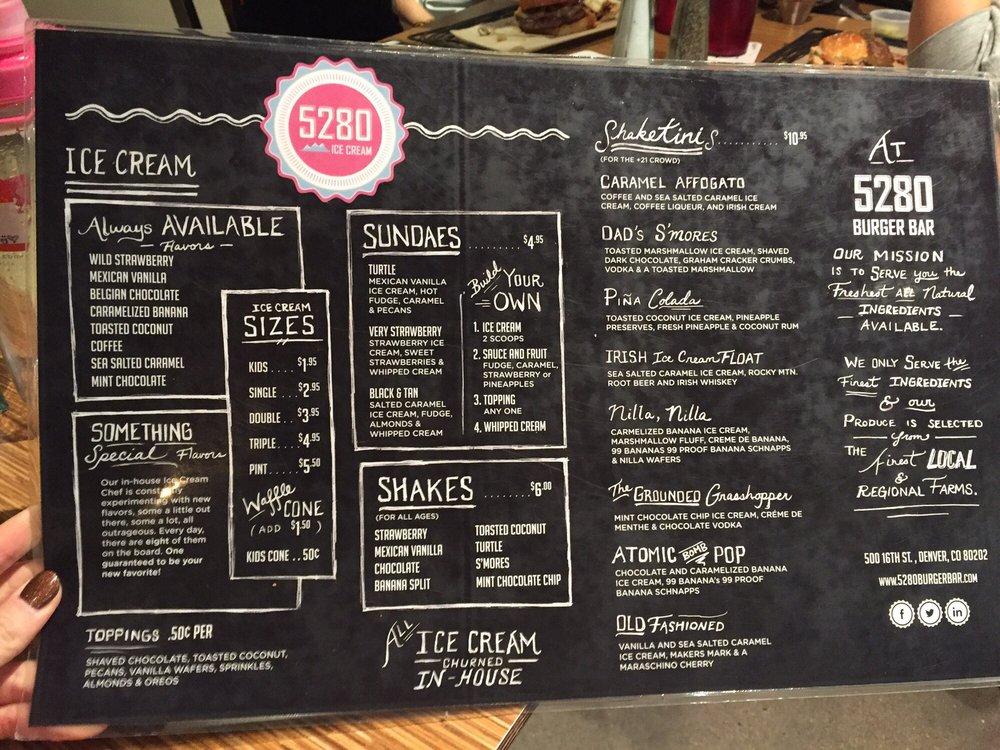 5280
ICE CREAM
ICE CREAM
Always AVAILABLE
Flavors
WILD STRAWBERRY
MEXICAN VANILLA
BELGIAN CHOCOLATE
CARAMELIZED BANANA
TOASTED COCONUT
COFFEE
SEA SALTED CARAMEL
MINT CHOCOLATE
ICE CREAM
SIZES
KIDS....$1.95
SINGLE...$2.95
DOUBLE...$3.95
TRIPLE....$4.95
PINT......$5.50
Waffle
CONE
(ADD $1.50)
KIDS CONE..50¢
SOMETHING
Special Flavors
Our in-house Ice Cream
Chef is constantly
experimenting with new
flavors, some a little out
there, some a lot, all
outrageous. Every day,
there are eight of them
on the board. One
guaranteed to be your
new favorite!
TOPPINGS .50¢ PER
SHAVED CHOCOLATE, TOASTED COCONUT,
PECANS, VANILLA WAFERS, SPRINKLES,
ALMONDS & OREOS
SUNDAES..........$4.95
TURTLE
MEXICAN VANILLA
ICE CREAM, HOT
FUDGE, CARAMEL
& PECANS
VERY STRAWBERRY
STRAWBERRY ICE
CREAM, SWEET
STRAWBERRIES &
WHIPPED CREAM
BLACK & TAN
SALTED CARAMEL
ICE CREAM, FUDGE,
ALMONDS &
WHIPPED CREAM
Build YOUR
OWN
1. ICE CREAM
2 SCOOPS
2. SAUCE AND FRUIT
FUDGE, CARAMEL,
STRAWBERRY or
PINEAPPLES
3. TOPPING
ANY ONE
4. WHIPPED CREAM
SHAKES.........$6.00
(FOR ALL AGES)
STRAWBERRY
MEXICAN VANILLA
CHOCOLATE
BANANA SPLIT
TOASTED COCONUT
TURTLE
S'MORES
MINT CHOCOLATE CHIP
ALL ICE CREAM
CHURNED
IN-HOUSE
ShakeTiniS............$10.95
(FOR THE +21 CROWD)
CARAMEL AFFOGATO
COFFEE AND SEA SALTED CARAMEL ICE
CREAM, COFFEE LIQUEUR, AND IRISH CREAM
DAD'S S'MORES
TOASTED MARSHMALLOW ICE CREAM, SHAVED
DARK CHOCOLATE, GRAHAM CRACKER CRUMBS,
VODKA & A TOASTED MARSHMALLOW
PIÑA Colada
TOASTED COCONUT ICE CREAM, PINEAPPLE
PRESERVES, FRESH PINEAPPLE & COCONUT RUM
IRISH Ice Cream FLOAT
SEA SALTED CARAMEL ICE CREAM, ROCKY MTN.
ROOT BEER AND IRISH WHISKEY
Nilla, Nilla
CARMELIZED BANANA ICE CREAM,
MARSHMALLOW FLUFF, CREME DE BANANA,
99 BANANAS 99 PROOF BANANA SCHNAPPS
& NILLA WAFERS
The GROUNDED Grasshopper
MINT CHOCOLATE CHIP ICE CREAM, CRÉME DE
MENTHE & CHOCOLATE VODKA
ATOMIC BOMB POP
CHOCOLATE AND CARAMELIZED BANANA
ICE CREAM, 99 BANANA's 99 PROOF
BANANA SCHNAPPS
OLD FASHIONED
VANILLA AND SEA SALTED CARAMEL
ICE CREAM, MAKERS MARK & A
MARASCHINO CHERRY
AT
5280
BURGER BAR
OUR MISSION
IS TO SERVE you the
Freshest ALL Natural
INGREDIENTS
AVAILABLE.
WE ONLY SERVE the
Finest INGREDIENTS
& our
PRODUCE IS SELECTED
from
THE finest LOCAL
& REGIONAL FARMS.
500 16TH ST., DENVER, CO 80202
WWW.5280BURGERBAR.COM
f in